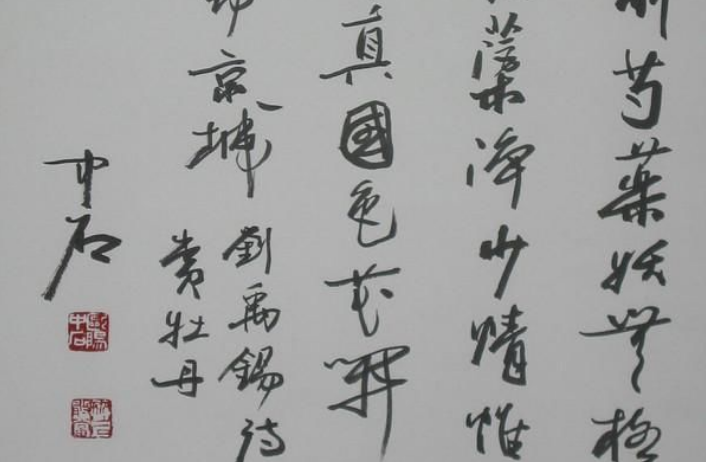 芍藥妖無格
蕖淨少情惟
真國色花開
京城
劉禹錫詩
賞牡丹
中石